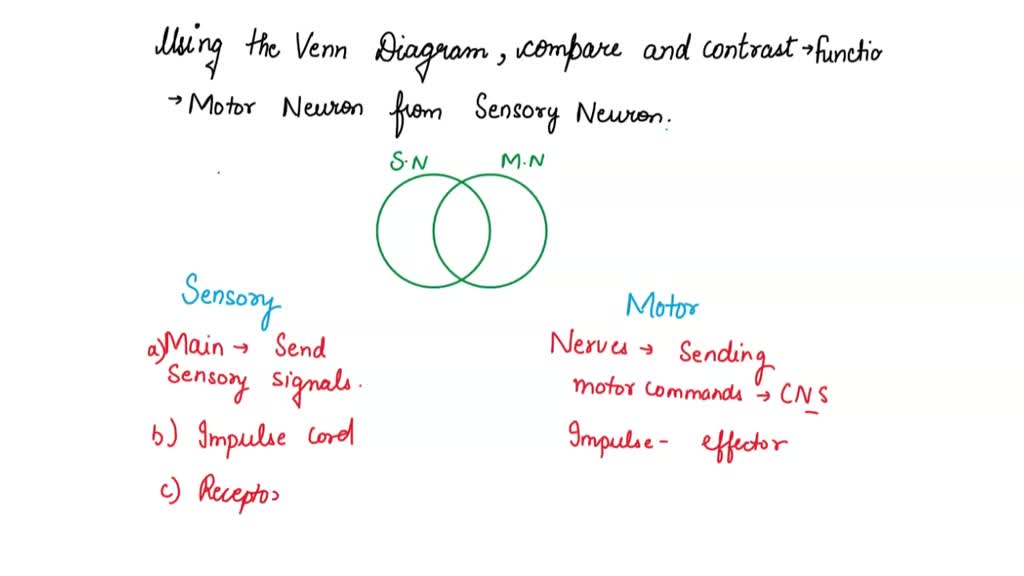 Using the Venn Diagram, compare and contrast → functio
→ Motor Neuron from Sensory Neuron.
S.N M.N
Sensory
a) Main → Send
Sensory signals.
b) Impulse cord
c) Recepto
Motor
Nerves → Sending
motor commands → CNS
Impulse - effector